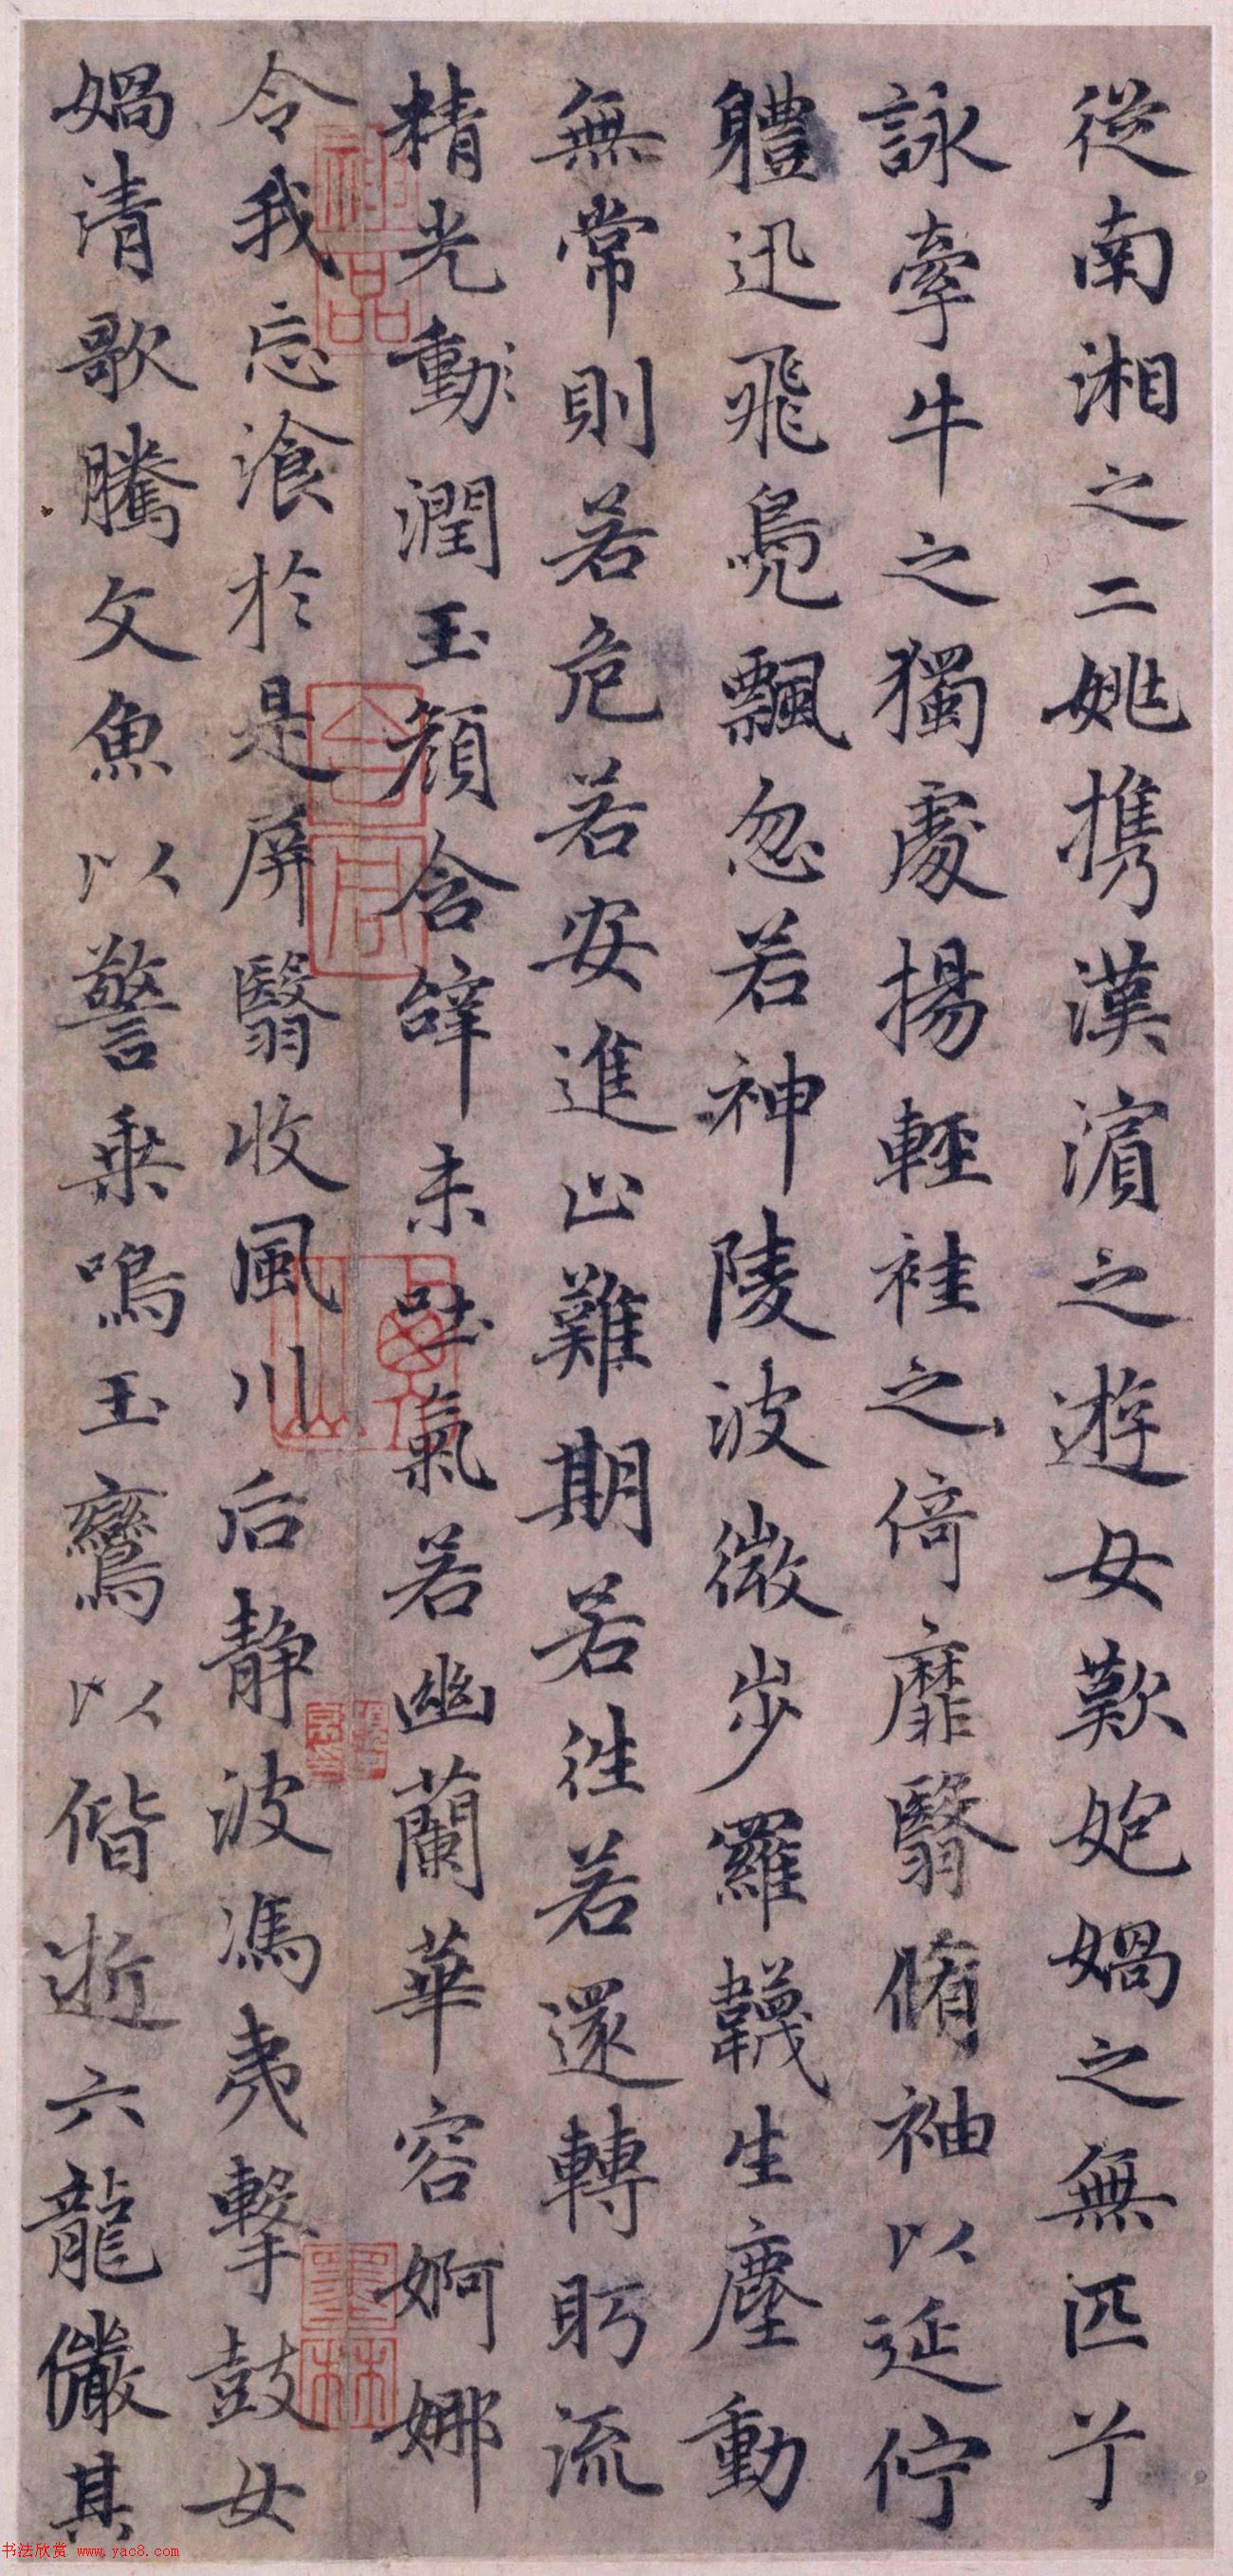 從南湘之二姚携漢濱之遊女歎匏媧之無匹兮
詠牽牛之獨處揚輕袿之倚靡翳脩袖以延佇
軆迅飛鳧飄忽若神陵波微步羅韈生塵動
無常則若危若安進止難期若往若還轉眄流
精光動潤玉顏含辝未吐氣若幽蘭華容婀娜
令我忘飡於是屏翳收風川后静波馮夷擊鼓女
媧清歌騰文魚以警乗鳴玉鸞以偕逝六龍儼其
神品
墨林
书法欣赏 www.yac8.com